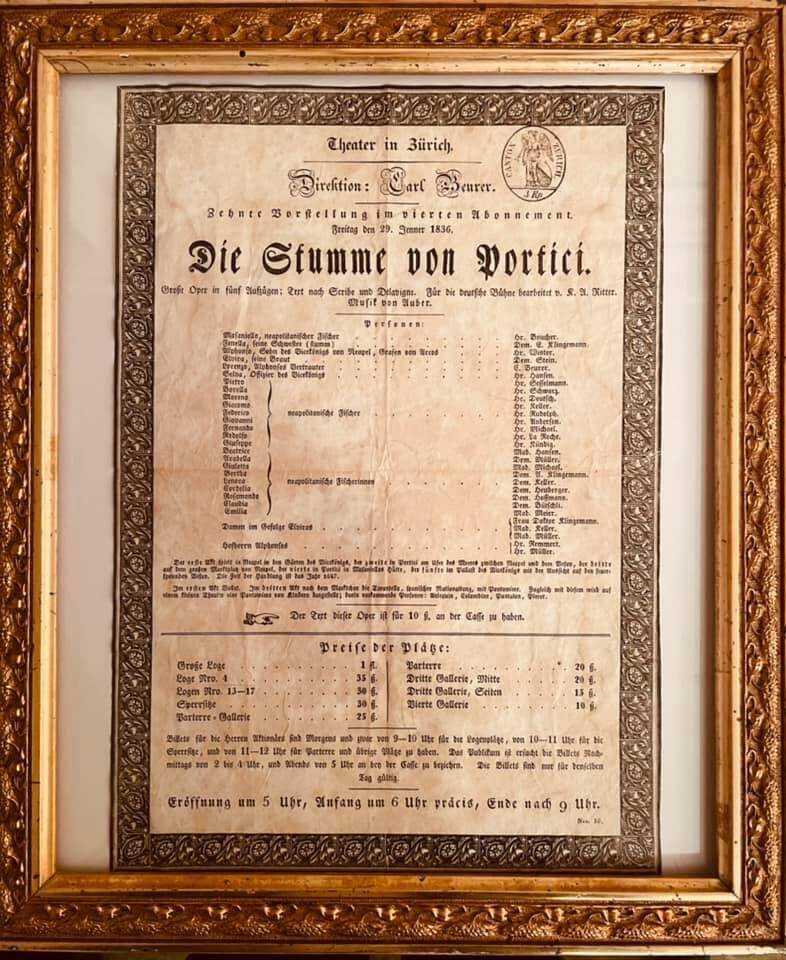 Theater in Zürich.
CANTON ZÜRICH
5 Rp
Direktion: Carl Beurer.
Zehnte Vorstellung im vierten Abonnement.
Freitag den 29. Jenner 1836.
Die Stumme von Portici.
Große Oper in fünf Aufzügen; Text nach Scribe und Delavigne. Für die deutsche Bühne bearbeitet v. K. A. Ritter.
Musik von Auber.
Personen:
Masaniello, neapolitanischer Fischer . . . Hr. Beucher.
Fenella, seine Schwester (stumm) . . . Dem. E. Klingemann.
Alphonso, Sohn des Vicekönigs von Neapel, Grafen von Arcos . . . Hr. Winter.
Elvira, seine Braut . . . Dem. Stein.
Lorenzo, Alphonsos Vertrauter . . . C. Beurer.
Selva, Offizier des Vicekönigs . . . Hr. Hansen.
Pietro Hr. Gesselmann.
Borella Hr. Schwarz.
Moreno Hr. Deutsch.
Giacomo Hr. Keller.
Federico neapolitanische Fischer . . . Hr. Rudolph.
Giovanni Hr. Andersen.
Fernando Hr. Michael.
Rodolfo Hr. La Roche.
Giuseppe Hr. Kündig.
Beatrice Mad. Hansen.
Arabella Dem. Müller.
Giuletta Mad. Michael.
Bertha Dem. A. Klingemann.
Lenora neapolitanische Fischerinnen . . . Dem. Keller.
Cordelia Dem. Heuberger.
Rosamonde Dem. Hoffmann.
Claudia Dem. Bürschli.
Emilia Mad. Meier.
Frau Doktor Klingemann.
Damen im Gefolge Elviras . . . Mad. Keller.
Mad. Müller.
Hofherrn Alphonsos . . . Hr. Remmert.
Hr. Müller.
Der erste Akt spielt in Neapel in den Gärten des Vicekönigs, der zweite in Portici am Ufer des Meeres zwischen Neapel und dem Vesuv, der dritte
auf dem großen Marktplatz von Neapel, der vierte in Portici in Masaniellos Hütte, der fünfte im Pallast des Vicekönigs mit der Aussicht auf den feuer-
speienden Vesuv. Die Zeit der Handlung ist das Jahr 1647.
Im ersten Akt Ballet. Im dritten Akt nach dem Marktchor die Tarantella, spanischer Nationaltanz, mit Pantomime. Zugleich mit diesem wird auf
einem kleinen Theater eine Pantomime von Kindern dargestellt; darin vorkommende Personen: Arlequin, Colombine, Pantalon, Pierot.
Der Text dieser Oper ist für 10 ß. an der Casse zu haben.
Preise der Plätze:
Große Loge . . . 1 fl. Parterre . . . 20 ß.
Loge Nro. 4 . . . 35 ß. Dritte Gallerie, Mitte . . . 20 ß.
Logen Nro. 13–17 . . . 30 ß. Dritte Gallerie, Seiten . . . 15 ß.
Sperrsitze . . . 30 ß. Vierte Gallerie . . . 10 ß.
Parterre-Gallerie . . . 25 ß.
Billets für die Herren Aktionärs sind Morgens und zwar von 9–10 Uhr für die Logenplätze, von 10–11 Uhr für die
Sperrsitze, und von 11–12 Uhr für Parterre und übrige Plätze zu haben. Das Publikum ist ersucht die Billets Nach-
mittags von 2 bis 4 Uhr, und Abends von 5 Uhr an bey der Casse zu beziehen. Die Billets sind nur für denselben
Tag gültig.
Eröffnung um 5 Uhr, Anfang um 6 Uhr präcis, Ende nach 9 Uhr.